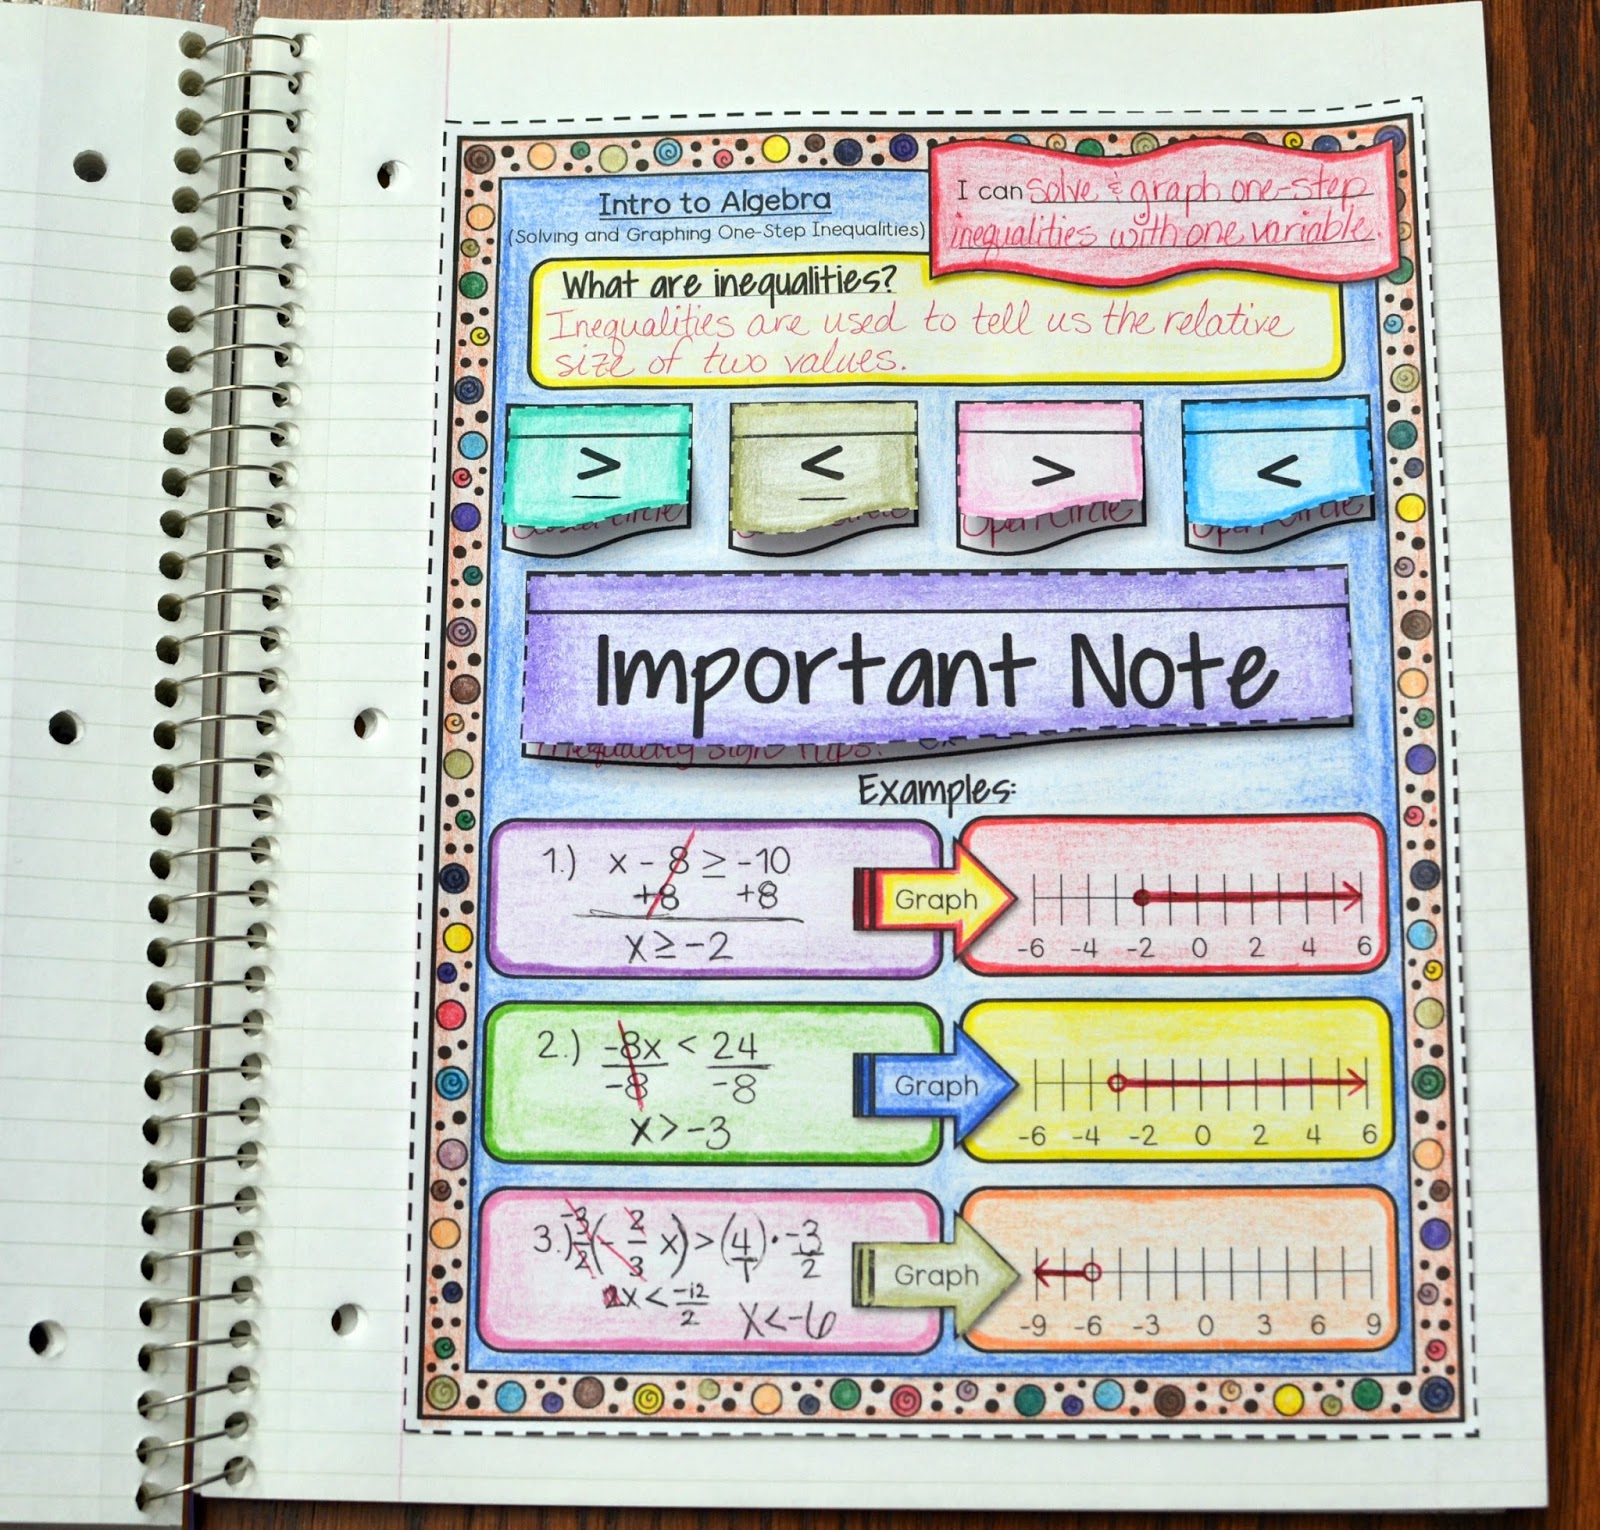 Intro to Algebra
(Solving and Graphing One-Step Inequalities)
I can solve & graph one-step
inequalities with one variable.
What are inequalities?
Inequalities are used to tell us the relative
size of two values.
≥ ≤ > <
Open Circle Open Circle
Important Note
Inequality sign flips!
Examples:
1.) x - 8 ≥ -10
+8 +8
x ≥ -2
Graph
-6 -4 -2 0 2 4 6
2.) -8x < 24
-8 -8
x > -3
Graph
-6 -4 -2 0 2 4 6
3.) -3/2 (- 2/3 x) > (4/1) · -3/2
x < -12/2 x < -6
Graph
-9 -6 -3 0 3 6 9